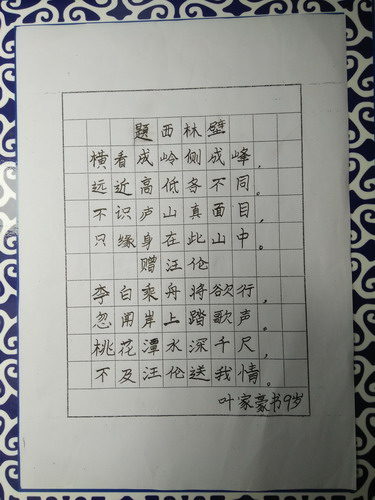 题西林壁
横看成岭侧成峰，
远近高低各不同。
不识庐山真面目，
只缘身在此山中。
赠汪伦
李白乘舟将欲行，
忽闻岸上踏歌声。
桃花潭水深千尺，
不及汪伦送我情。
叶家豪书9岁